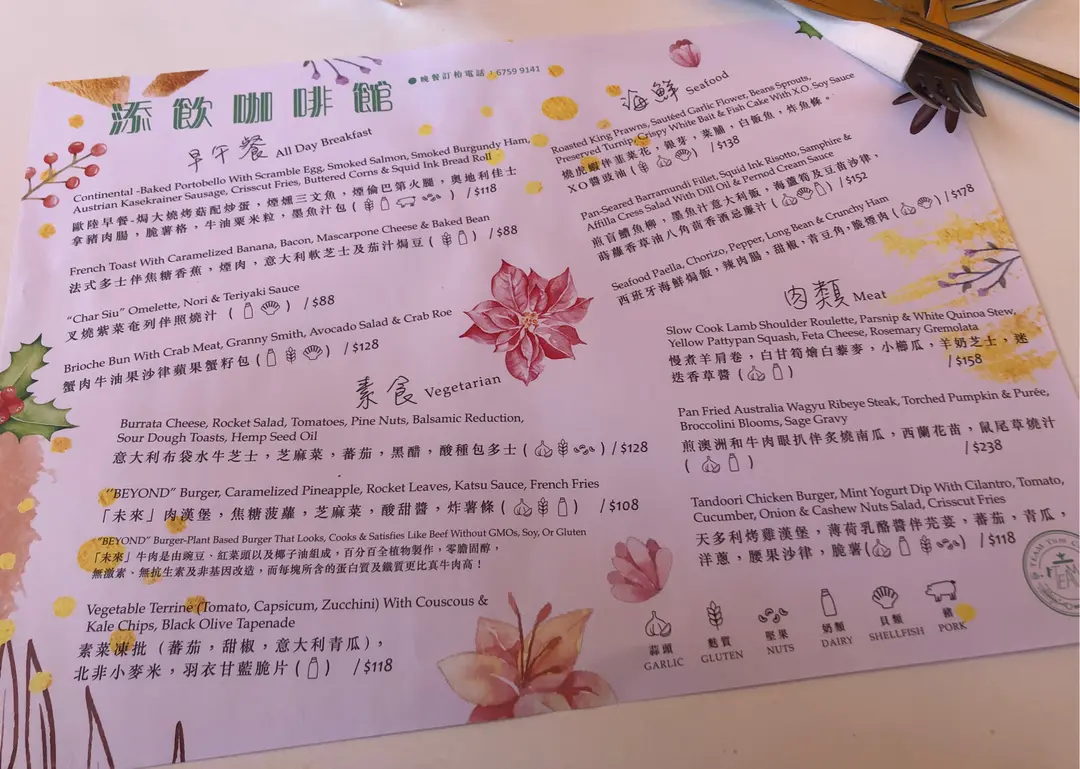 添飲咖啡館
晚餐訂枱電話：6759 9141
早午餐 All Day Breakfast
Continental -Baked Portobello With Scramble Egg, Smoked Salmon, Smoked Burgundy Ham,
Austrian Kasekrainer Sausage, Crisscut Fries, Buttered Corns & Squid Ink Bread Roll
歐陸早餐-焗大燒烤菇配炒蛋，煙燻三文魚，煙倫巴第火腿，奧地利佳士
拿豬肉腸，脆薯格，牛油粟米粒，墨魚汁包 ( ) / $118
French Toast With Caramelized Banana, Bacon, Mascarpone Cheese & Baked Bean
法式多士伴焦糖香蕉，煙肉，意大利軟芝士及茄汁焗豆 ( ) / $88
"Char Siu" Omelette, Nori & Teriyaki Sauce
叉燒紫菜奄列伴照燒汁 ( ) / $88
Brioche Bun With Crab Meat, Granny Smith, Avocado Salad & Crab Roe
蟹肉牛油果沙律蘋果蟹籽包 ( ) / $128
素食 Vegetarian
Burrata Cheese, Rocket Salad, Tomatoes, Pine Nuts, Balsamic Reduction,
Sour Dough Toasts, Hemp Seed Oil
意大利布袋水牛芝士，芝麻菜，蕃茄，黑醋，酸種包多士 ( ) / $128
"BEYOND" Burger, Caramelized Pineapple, Rocket Leaves, Katsu Sauce, French Fries
「未來」肉漢堡，焦糖菠蘿，芝麻菜，酸甜醬，炸薯條 ( ) / $108
"BEYOND" Burger-Plant Based Burger That Looks, Cooks & Satisfies Like Beef Without GMOs, Soy, Or Gluten
「未來」牛肉是由豌豆、紅菜頭以及椰子油組成，百分百全植物製作，零膽固醇，
無激素、無抗生素及非基因改造，而每塊所含的蛋白質及鐵質更比真牛肉高！
Vegetable Terrine (Tomato, Capsicum, Zucchini) With Couscous &
Kale Chips, Black Olive Tapenade
素菜凍批（蕃茄，甜椒，意大利青瓜），
北非小麥米，羽衣甘藍脆片 ( ) / $118
海鮮 Seafood
Roasted King Prawns, Sautéed Garlic Flower, Beans Sprouts,
Preserved Turnip, Crispy White Bait & Fish Cake With X.O. Soy Sauce
燒虎蝦伴韮菜花，銀芽，菜脯，白飯魚，炸魚條。
XO醬豉油 ( ) / $138
Pan-Seared Barramundi Fillet, Squid Ink Risotto, Samphire &
Affilla Cress Salad With Dill Oil & Pernod Cream Sauce
煎盲鰽魚柳，墨魚汁意大利飯，海蘆筍及豆苗沙律，
蒔蘿香草油八角茴香酒忌廉汁 ( ) / $152
Seafood Paella, Chorizo, Pepper, Long Bean & Crunchy Ham
西班牙海鮮焗飯，辣肉腸，甜椒，青豆角，脆煙肉 ( ) / $178
肉類 Meat
Slow Cook Lamb Shoulder Roulette, Parsnip & White Quinoa Stew,
Yellow Pattypan Squash, Feta Cheese, Rosemary Gremolata
慢煮羊肩卷，白甘筍燴白藜麥，小櫛瓜，羊奶芝士，迷
迭香草醬 ( ) / $158
Pan Fried Australia Wagyu Ribeye Steak, Torched Pumpkin & Purée,
Broccolini Blooms, Sage Gravy
煎澳洲和牛肉眼扒伴炙燒南瓜，西蘭花苗，鼠尾草燒汁
( ) / $238
Tandoori Chicken Burger, Mint Yogurt Dip With Cilantro, Tomato,
Cucumber, Onion & Cashew Nuts Salad, Crisscut Fries
天多利烤雞漢堡，薄荷乳酪醬伴芫荽，蕃茄，青瓜，
洋蔥，腰果沙律，脆薯 ( ) / $118
蒜頭 麩質 堅果 奶類 貝類 豬
GARLIC GLUTEN NUTS DAIRY SHELLFISH PORK